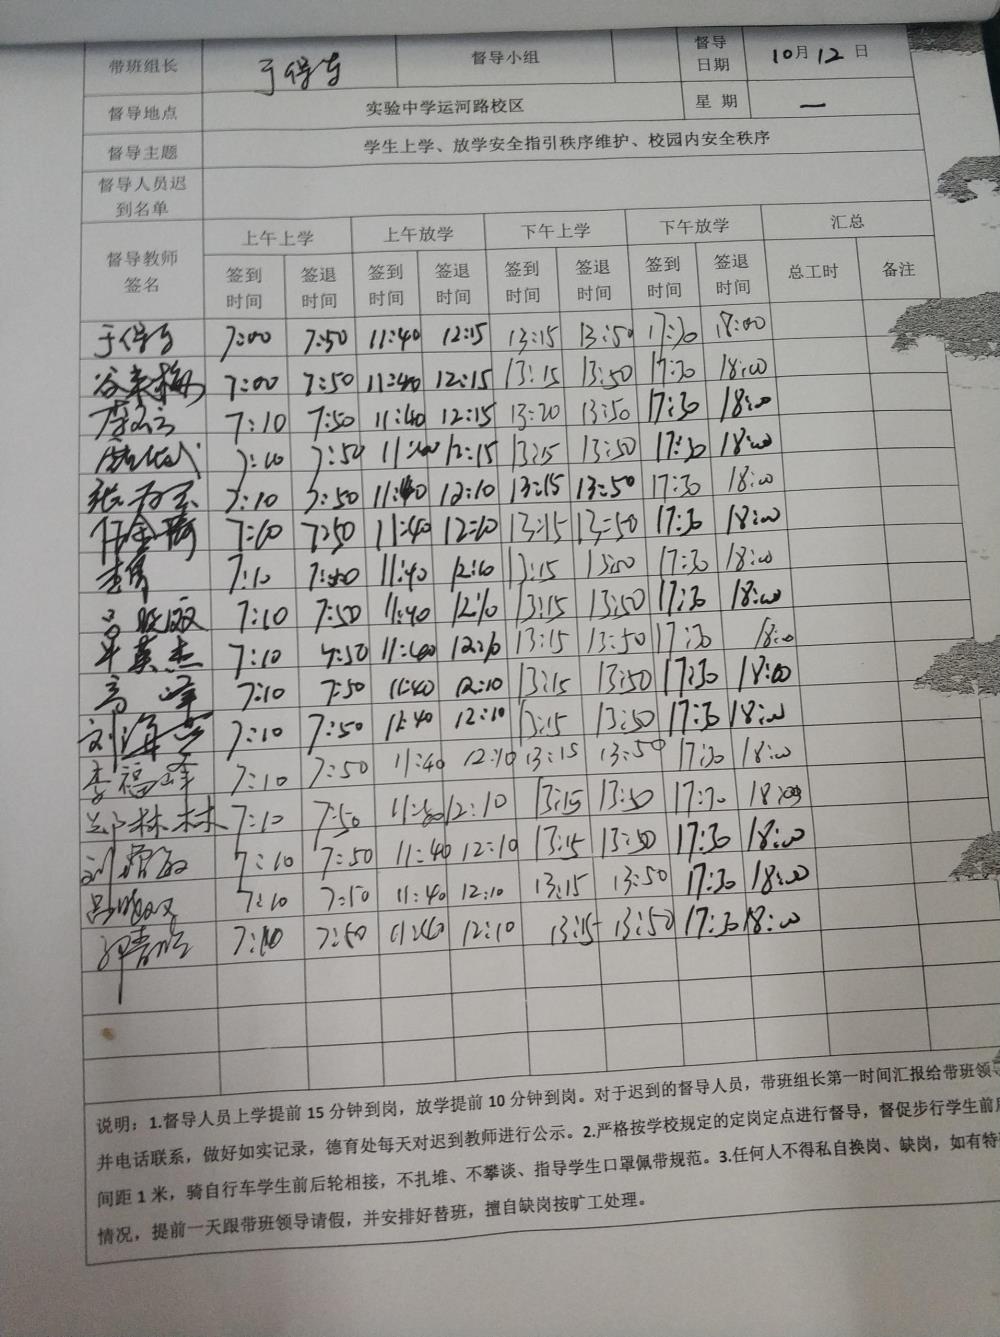 带班组长 于保东 督导小组 督导日期 10月12日
督导地点 实验中学运河路校区 星期 一
督导主题 学生上学、放学安全指引秩序维护、校园内安全秩序
督导人员迟到名单
督导教师签名 上午上学 上午放学 下午上学 下午放学 汇总
签到时间 签退时间 签到时间 签退时间 签到时间 签退时间 签到时间 签退时间 总工时 备注
7:00 7:50 11:40 12:15 13:15 13:50 17:30 18:00
7:00 7:50 11:40 12:15 13:15 13:50 17:30 18:00
7:10 7:50 11:40 12:15 13:20 13:50 17:30 18:00
7:10 7:50 11:40 12:15 13:15 13:50 17:30 18:00
7:10 7:50 11:40 12:10 13:15 13:50 17:30 18:00
7:10 7:50 11:40 12:10 13:15 13:50 17:30 18:00
7:10 7:50 11:40 12:10 13:15 13:50 17:30 18:00
7:10 7:50 11:40 12:10 13:15 13:50 17:30 18:00
7:10 7:50 11:40 12:10 13:15 13:50 17:30 18:00
高峰 7:10 7:50 11:40 12:10 13:15 13:50 17:30 18:00
刘海 7:10 7:50 11:40 12:10 13:15 13:50 17:30 18:00
李福峰 7:10 7:50 11:40 12:10 13:15 13:50 17:30 18:00
林林 7:10 7:50 11:40 12:10 13:15 13:50 17:30 18:00
刘 7:10 7:50 11:40 12:10 13:15 13:50 17:30 18:00
7:10 7:50 11:40 12:10 13:15 13:50 17:30 18:00
7:10 7:50 11:40 12:10 13:15 13:50 17:30 18:00
说明：1.督导人员上学提前15分钟到岗，放学提前10分钟到岗。对于迟到的督导人员，带班组长第一时间汇报给带班领导
并电话联系，做好如实记录，德育处每天对迟到教师进行公示。2.严格按学校规定的定岗定点进行督导，督促步行学生前后
间距1米，骑自行车学生前后轮相接，不扎堆、不攀谈、指导学生口罩佩带规范。3.任何人不得私自换岗、缺岗，如有特
情况，提前一天跟带班领导请假，并安排好替班，擅自缺岗按旷工处理。